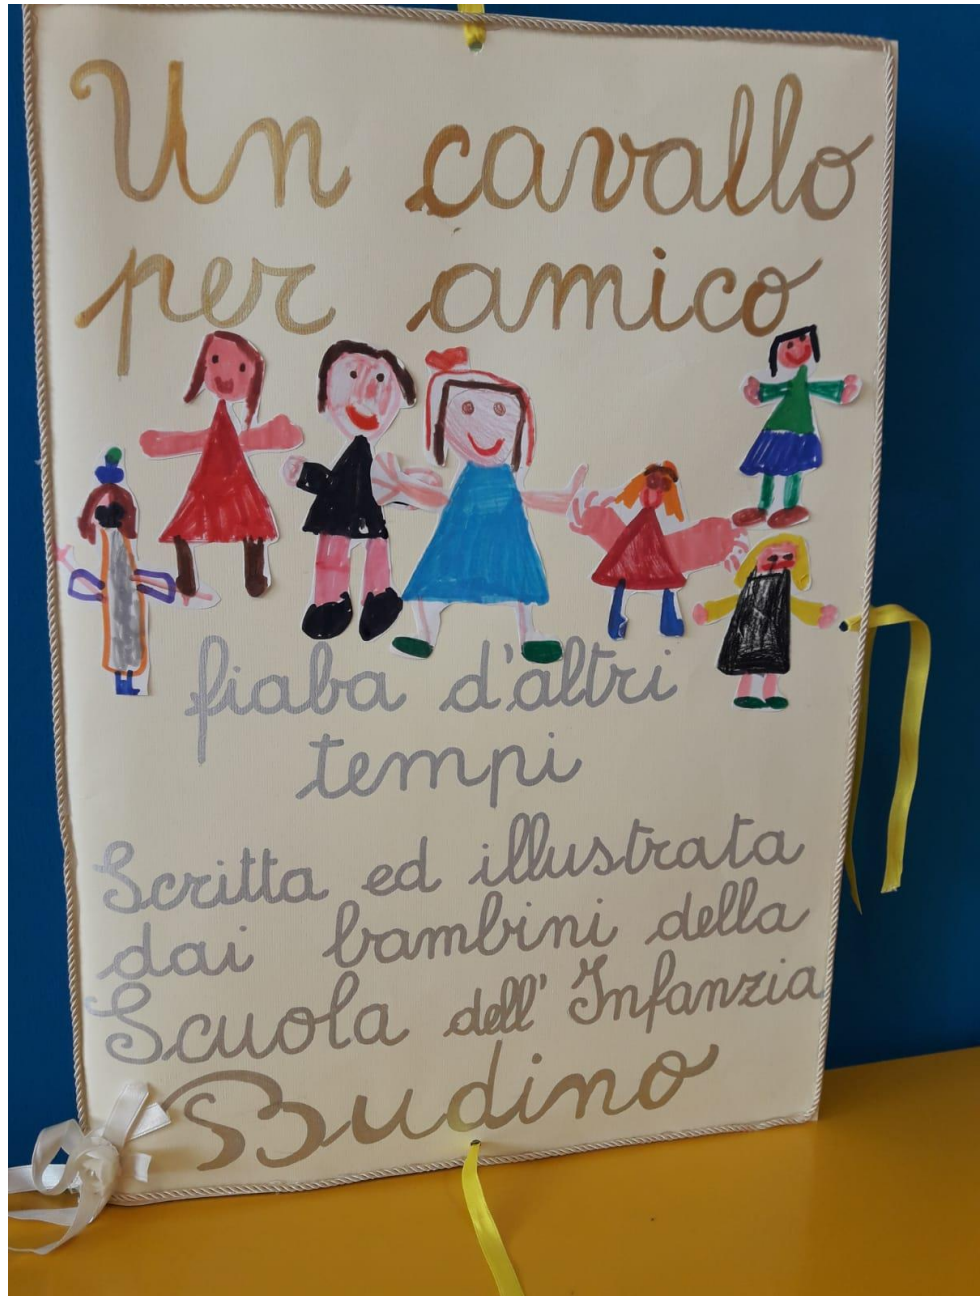 Un cavallo
per amico
fiaba d'altri
tempi
Scritta ed illustrata
dai bambini della
Scuola dell'Infanzia
Budino